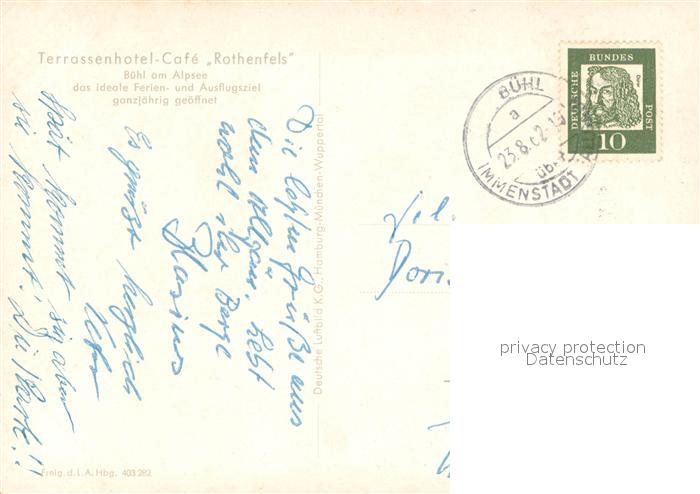 Terrassenhotel-Café „Rothenfels"
Bühl am Alpsee
das ideale Ferien- und Ausflugsziel
ganzjährig geöffnet
Die letzten Grüße aus
dem Allgäu. Lebt
wohl ihr Berge
Es grüßt herzlich
Spät kommt sie aber
sie kommt! Die Karte!!
Deutsche Luftbild K.G., Hamburg-München-Wuppertal
Freig. d. L. A. Hbg. 403 282
BÜHL
a
23.8.62
über
IMMENSTADT
DEUTSCHE
BUNDES
POST
10
Doris
privacy protection
Datenschutz